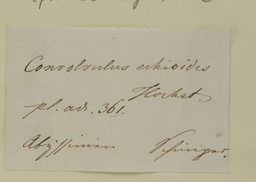 Convolvulus echioides
Hochst
pl. adv. 361.
Abÿssinien Schimper.